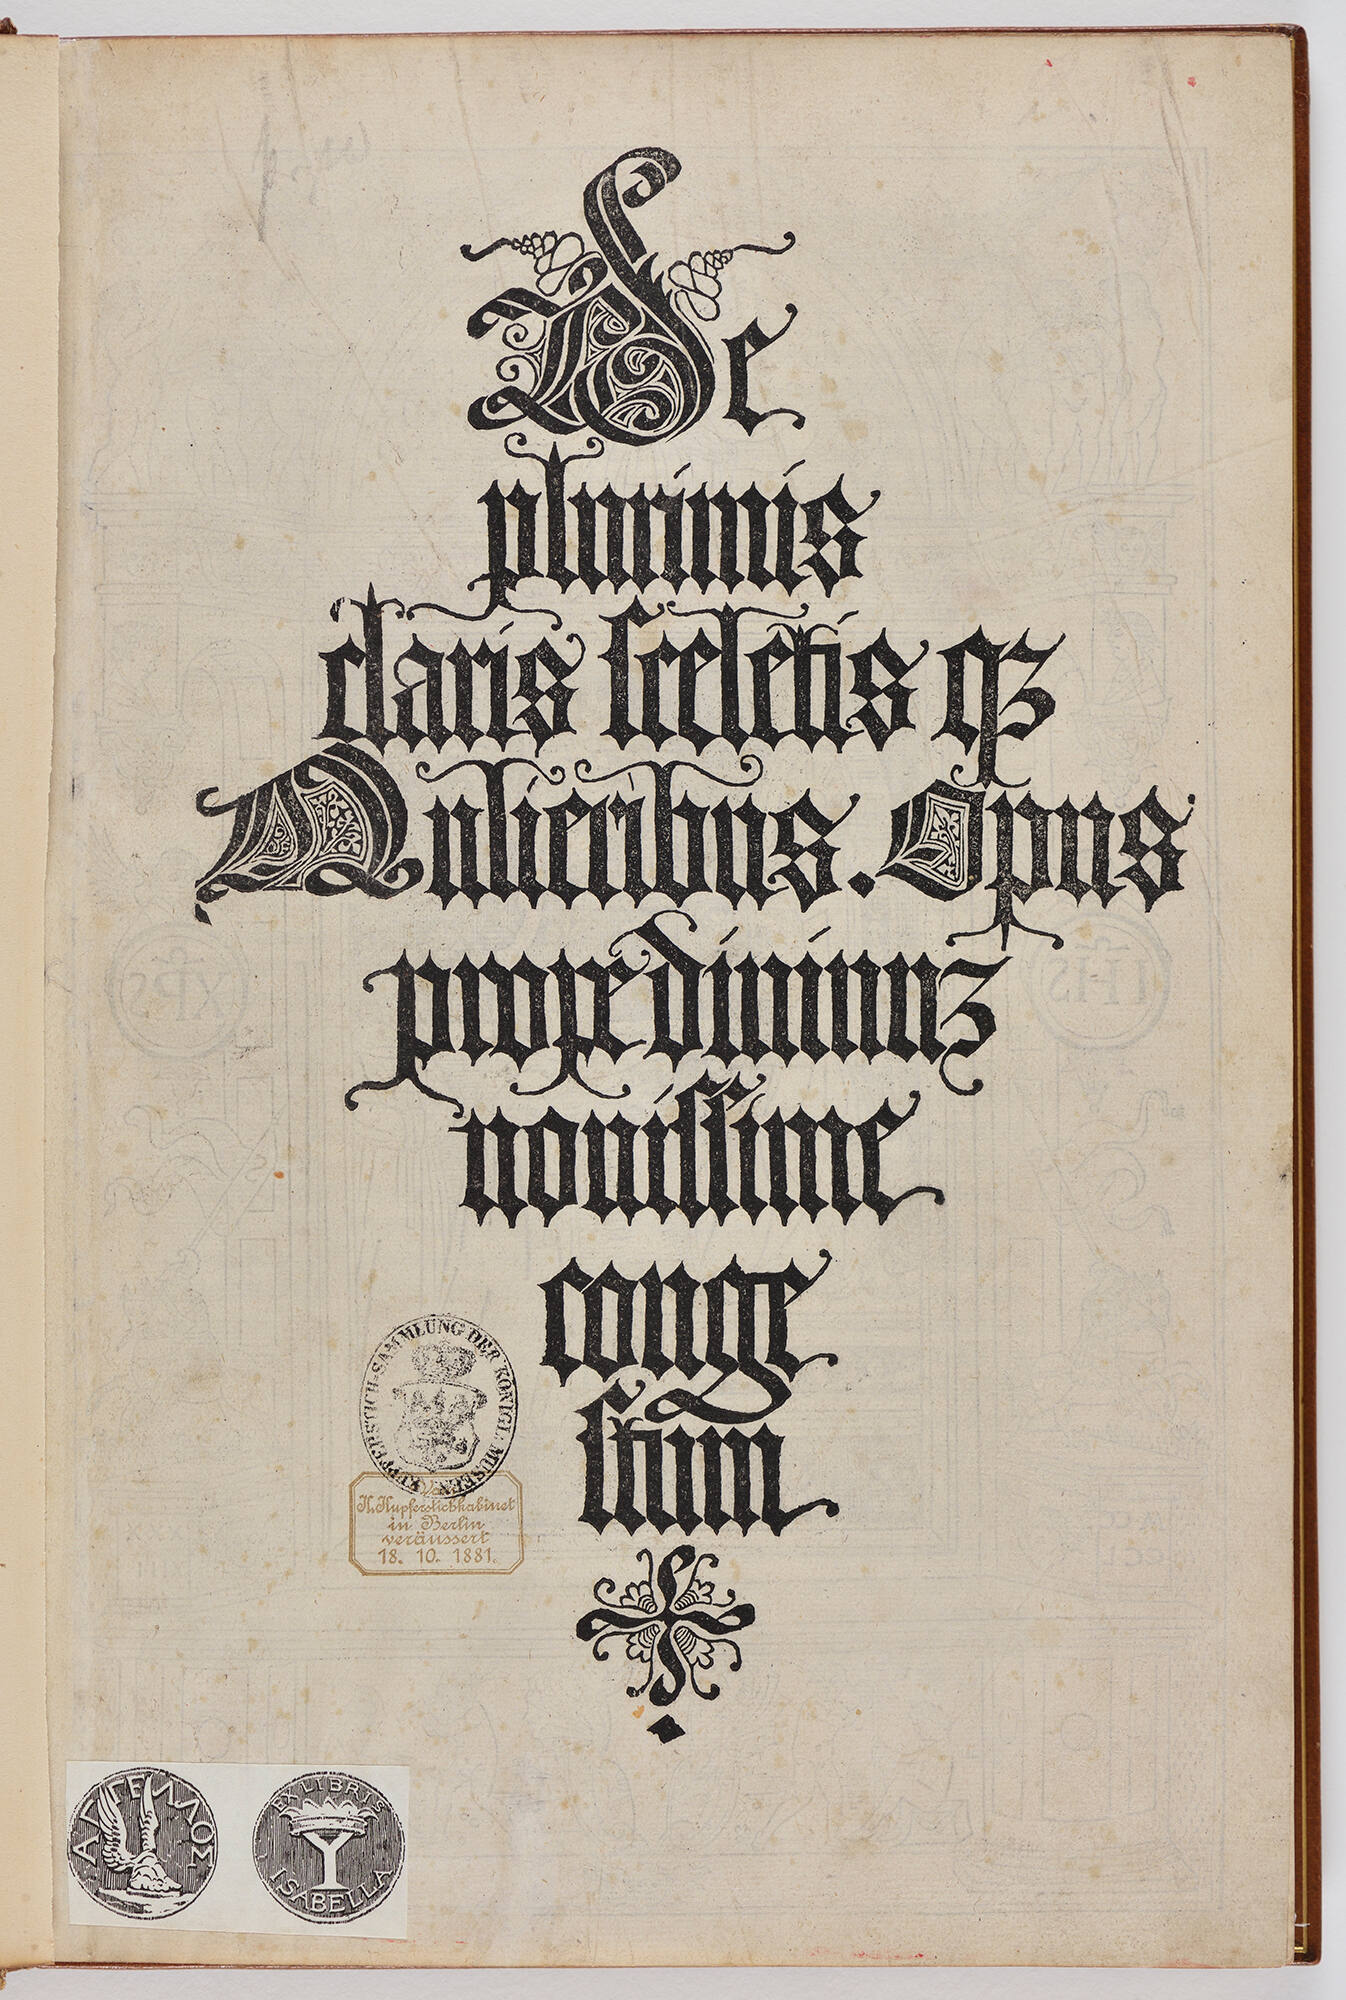 De
plurimis
claris sceletisqꝫ
Mulieribus. Opus
prope diuinuꝫ
nouissime
conge
stum
KUPFERSTICH-SAMMLUNG DER KÖNIGL: MUSEEN
Vom
K. Kupferstichkabinet
in Berlin
veräussert
18. 10. 1881.
ΑΓΓΕΛΛΟΣ
EX LIBRIS
ISABELLA